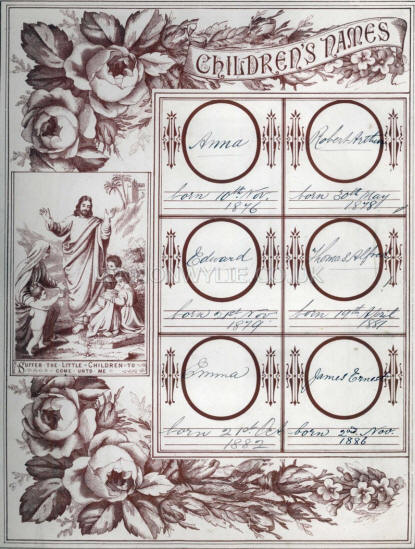 CHILDREN'S NAMES
Anna
born 10th Nov.
1876
Robert Arthur
born 30th May
1878
Edward
born 21st Nov
1879
Thomas Alfred
born 19th April
1881
Emma
born 21st Oct
1882
James Ernest
born 2nd Nov.
1886
SUFFER THE LITTLE CHILDREN TO
COME UNTO ME